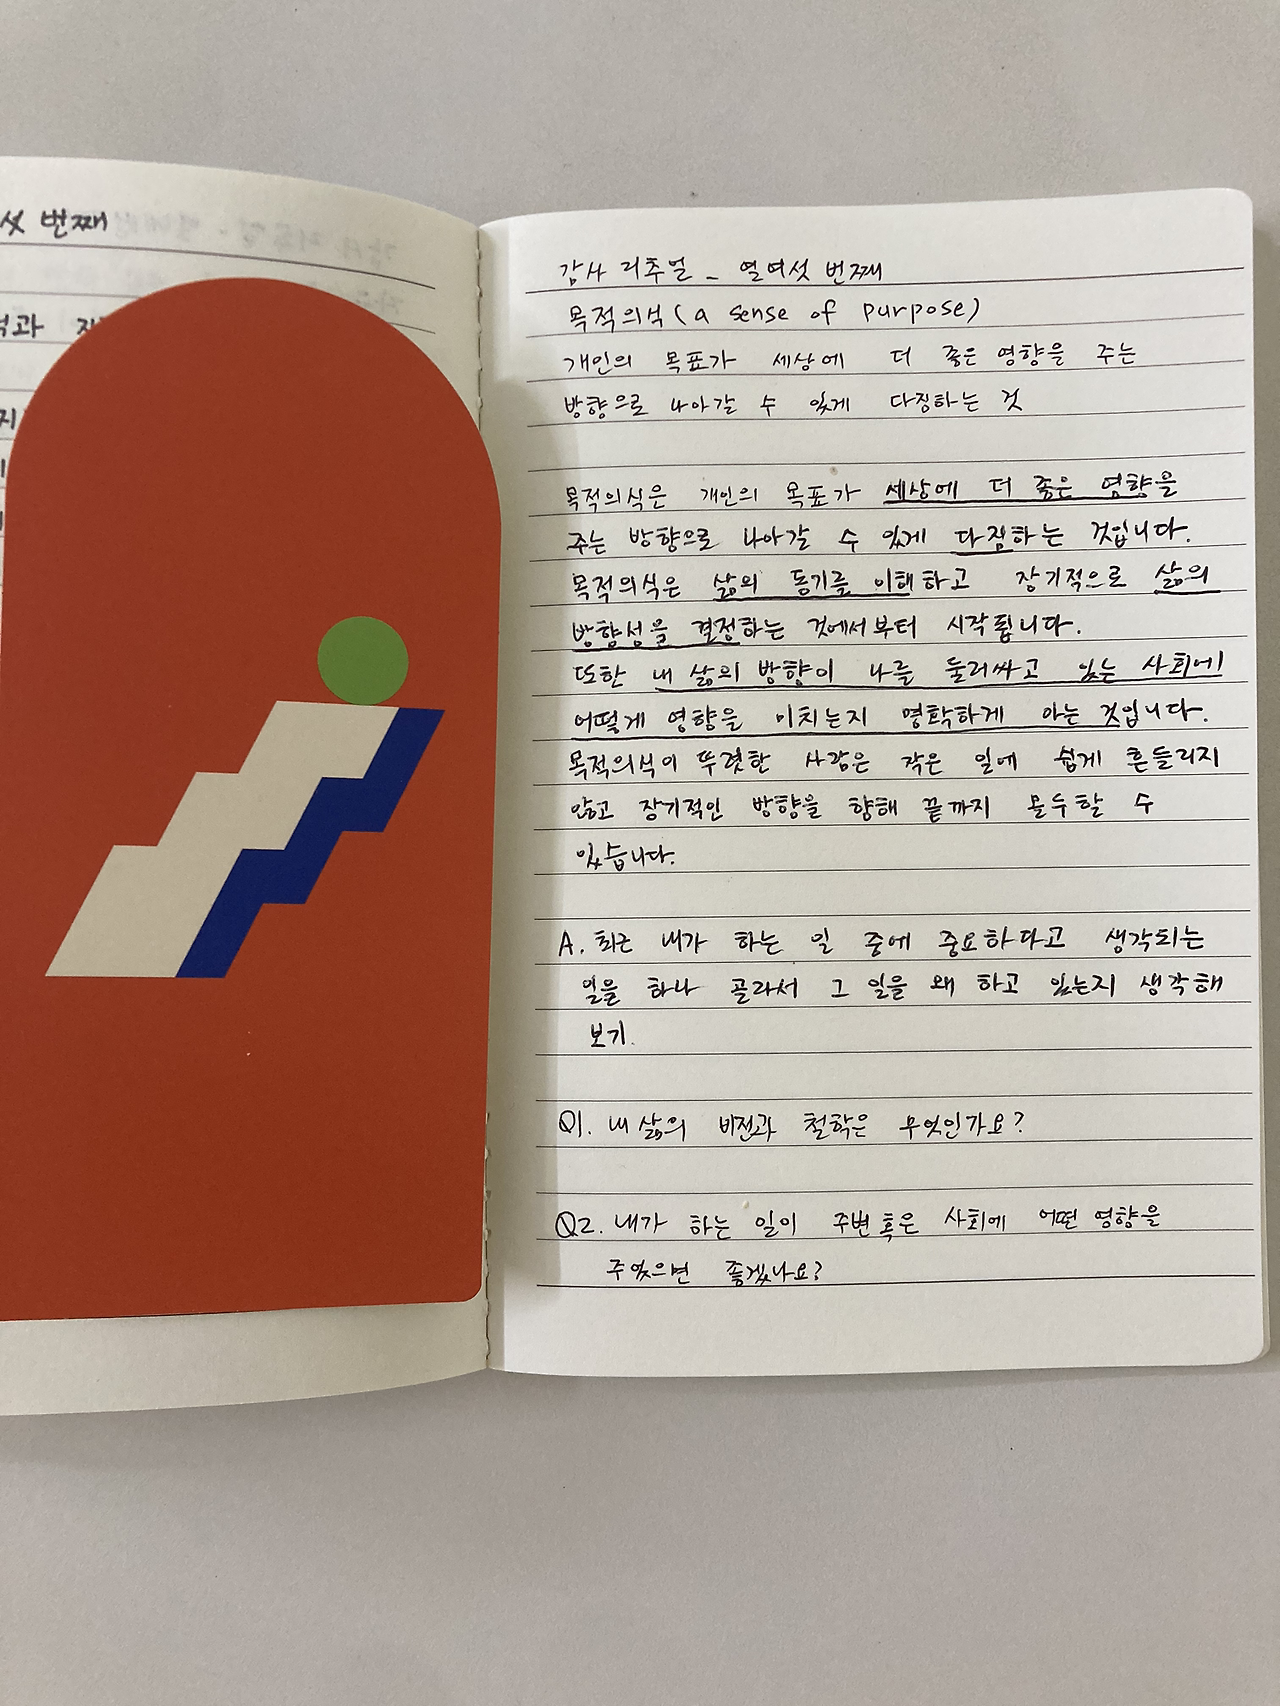 섯 번째
감사 리추얼 - 열여섯 번째
목적의식 (a sense of purpose)
개인의 목표가 세상에 더 좋은 영향을 주는
방향으로 나아갈 수 있게 다짐하는 것
목적의식은 개인의 목표가 세상에 더 좋은 영향을
주는 방향으로 나아갈 수 있게 다짐하는 것입니다.
목적의식은 삶의 동기를 이해하고 장기적으로 삶의
방향성을 결정하는 것에서부터 시작됩니다.
또한 내 삶의 방향이 나를 둘러싸고 있는 사회에
어떻게 영향을 미치는지 명확하게 아는 것입니다.
목적의식이 뚜렷한 사람은 작은 일에 쉽게 흔들리지
않고 장기적인 방향을 향해 끝까지 몰두할 수
있습니다.
A. 최근 내가 하는 일 중에 중요하다고 생각되는
일을 하나 골라서 그 일을 왜 하고 있는지 생각해
보기.
Q1. 내 삶의 비전과 철학은 무엇인가요?
Q2. 내가 하는 일이 주변 혹은 사회에 어떤 영향을
주었으면 좋겠나요?